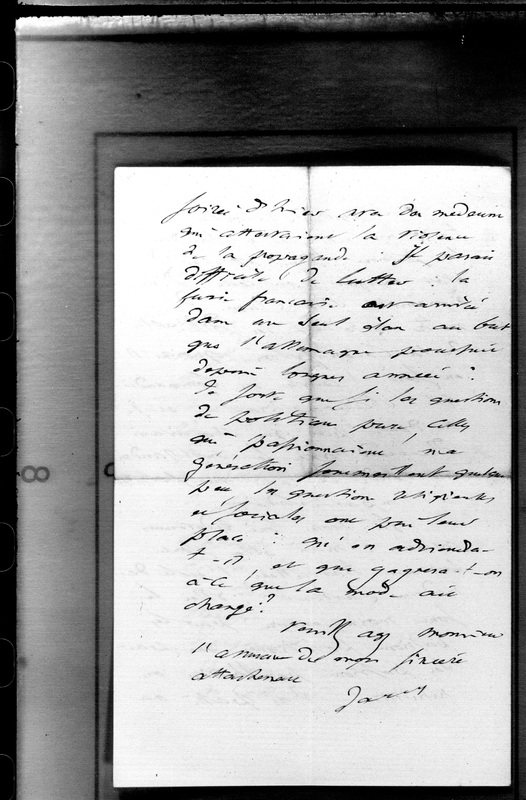 soirée d'hier avec des médecins
qui attestaient la violence
de la propagande. Il parait
difficile de lutter : la
furie française est arrivée
dans un seul élan au but
que l'allemagne poursuit
depuis longues années.
De sorte que si les questions
de politique pure, celles
qui passionnaient ma
génération sommeillent quelque
peu les question religieuses
et sociales ont pris leur
place : qu'en adviendra-
t-il, et que gagnera-t-on
à ce que la mode ait
changé?
Veuillez agr monsieur
l'assurance de mon sincère
attachement